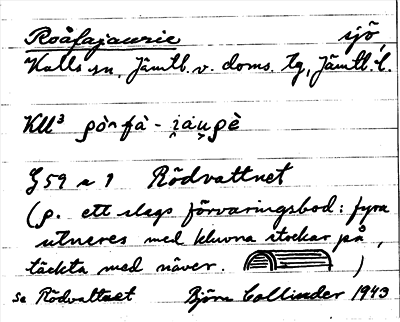 Roåfajaurie sjö,
Kalls sn, Jämtl. v. doms. tg, Jämtl. l.
Kll³
G 59 a 1 Rödvattnet
(ρ. ett slags förvaringsbod: fyra
utneres med kluvna stockar på,
täckta med näver. )
se Rödvattnet Björn Collinder 1943